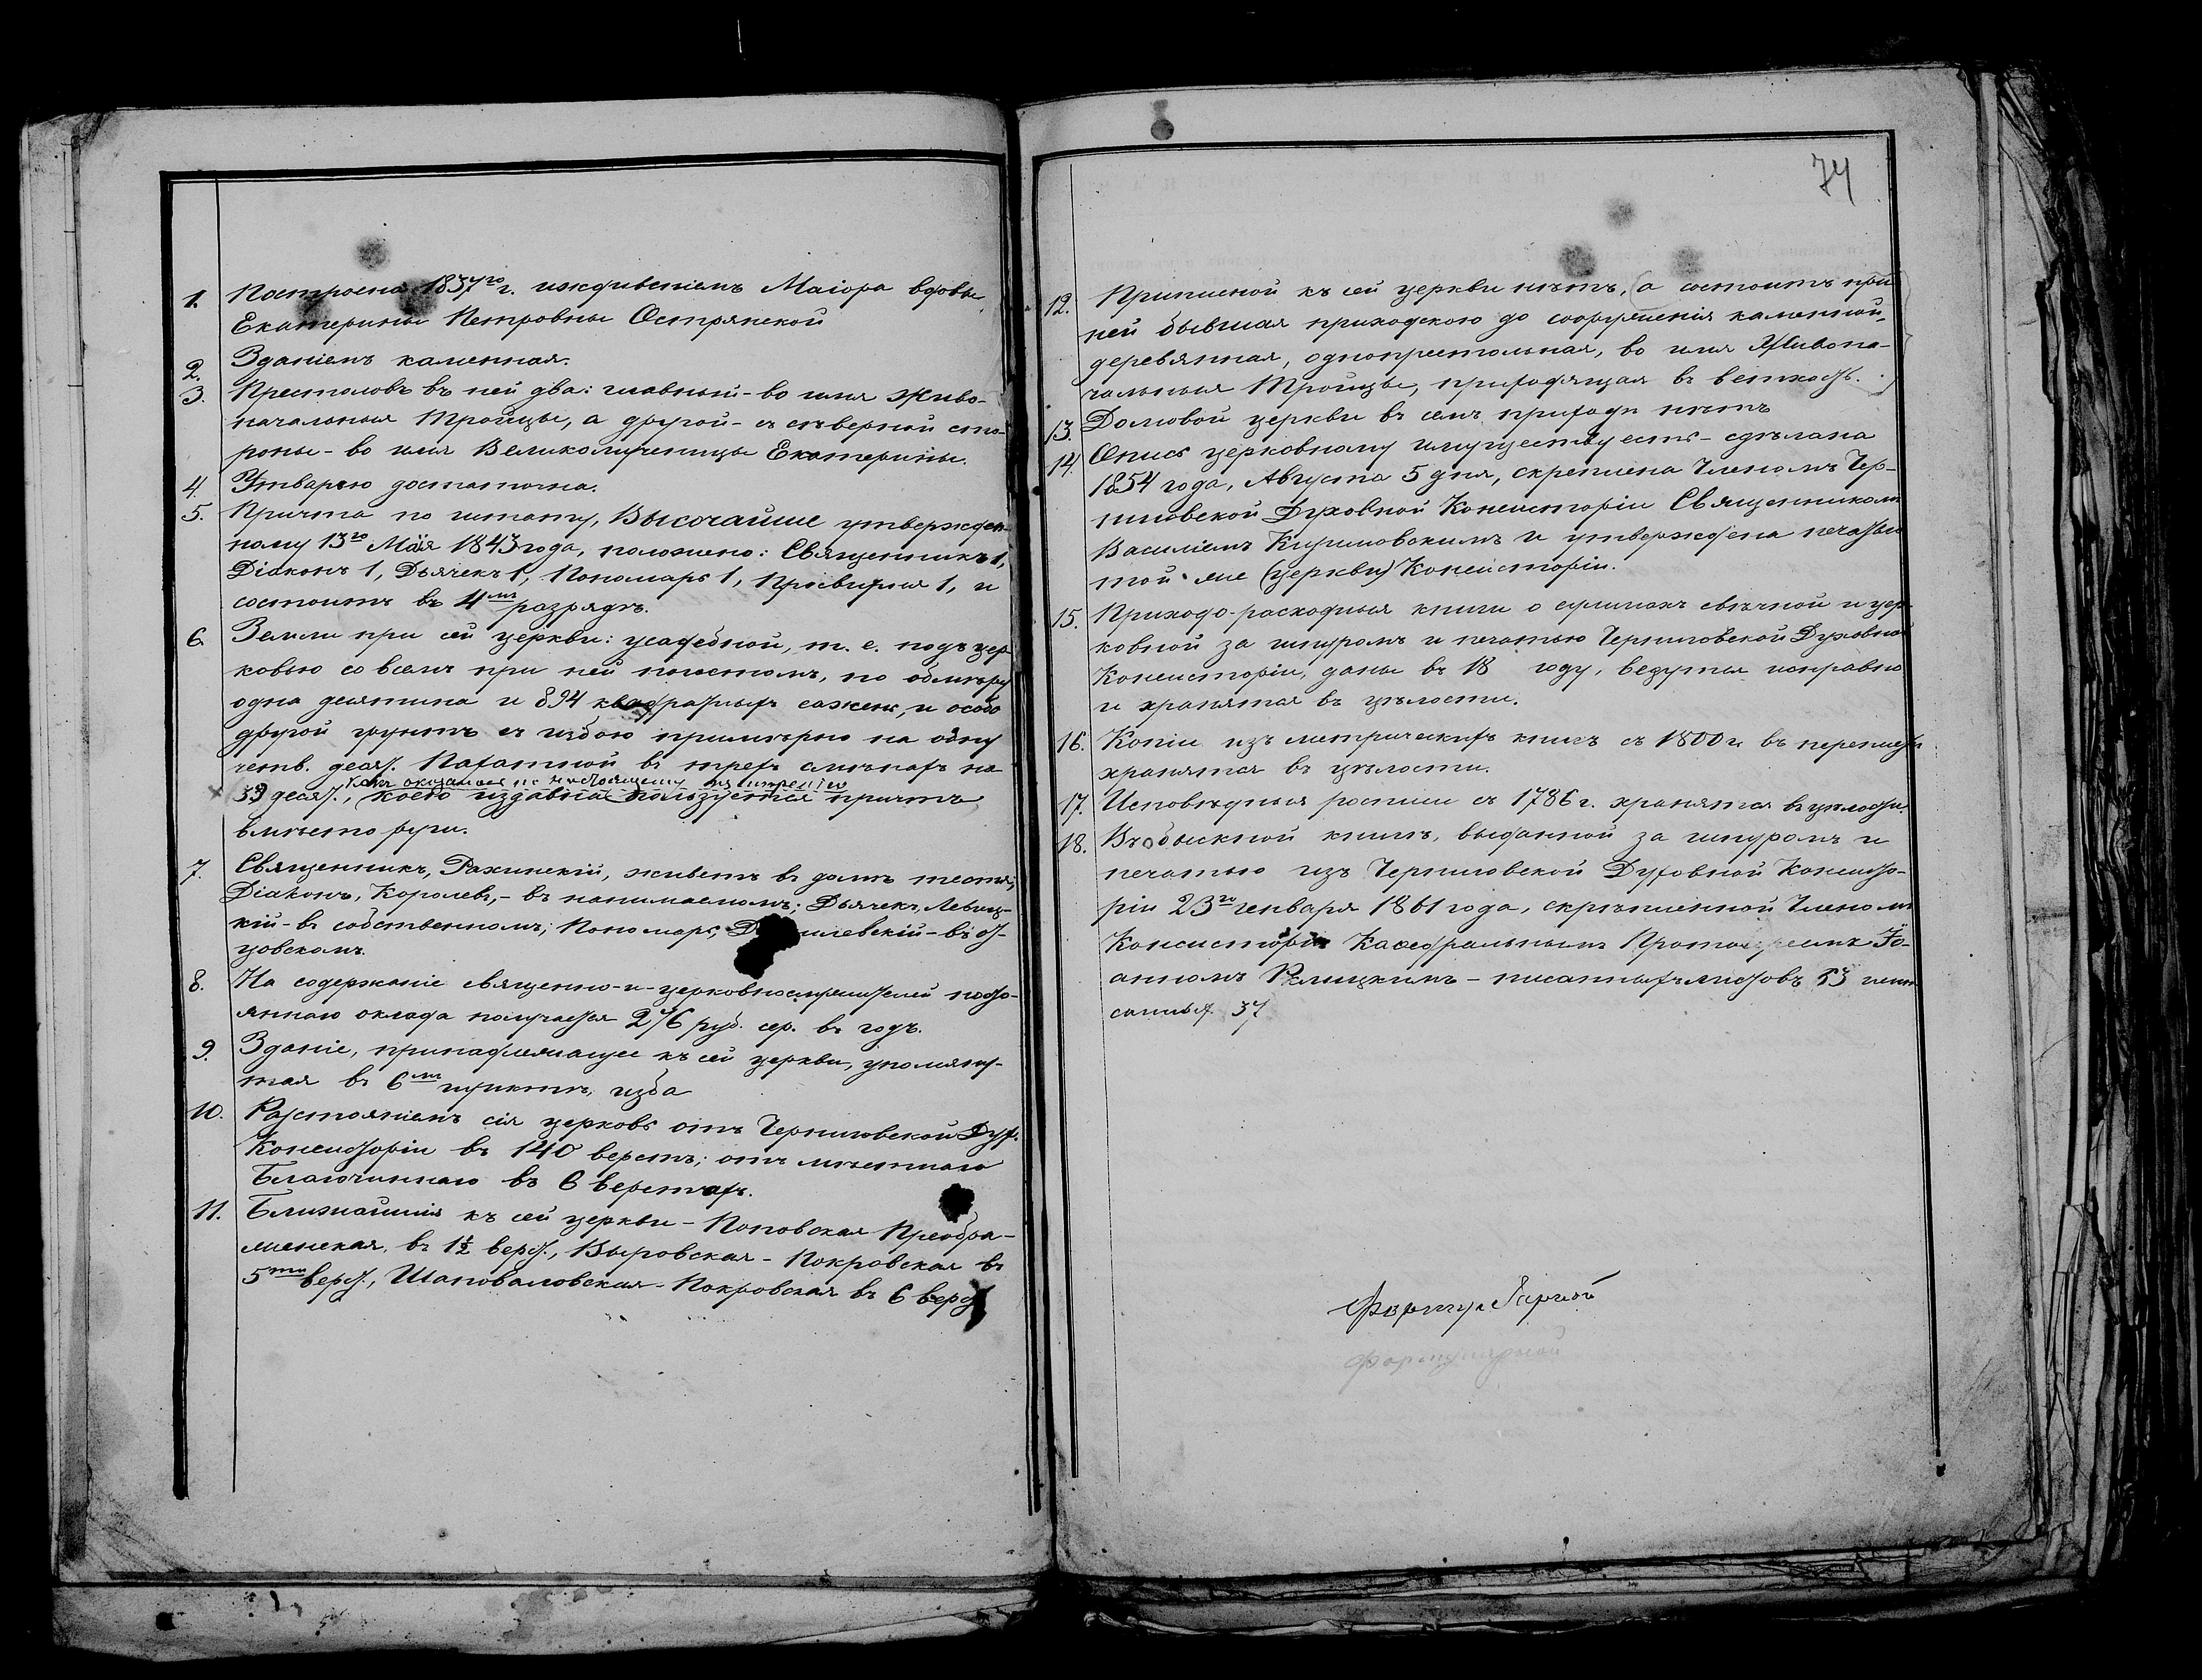 1. Построена 1837го г. иждивеніемъ Маіора вдовы
Екатерины Петровны Острянской
2. Зданіемъ каменная.
3. Престоловъ въ ней два: главный - во имя Живо-
начальныя Тройцы, а другой - съ сѣверной сто-
роны - во имя Великомученицы Екатерины.
4. Утварью достаточна.
5. Причта по штату, Высочайше утвержден-
ному 13го Маія 1843 года, положено: Священникъ 1,
Діаконъ 1, Дьячекъ 1, Пономарь 1, Просвирня 1, и
состоитъ въ 4мъ разрядѣ.
6. Земли при сей церкви: усадебной, т. е. подъ цер-
ковью со всемъ при ней погостомъ, по обмѣру
одна десятина и 894 квадратныхъ сажень, и особо
другой грунтъ съ избою примѣрно на одну
четв. десят. Пахатной въ трехъ смѣнахъ на
какъ оказалось по настоящему
33 десят., коею издавна пользуется причтъ
вмѣсто руги.
7. Священникъ, Рахинскій, живетъ въ домѣ тестя;
Діаконъ, Королевъ, - въ нанимаемомъ; Дьячекъ, Левиц-
кій - въ собственномъ; Пономарь, - въ от-
цовскомъ.
8. На содержаніе священно-и-церковнослужителей посто-
яннаго оклада получается 276 руб. сер. въ годъ.
9. Зданіе, принадлежащее къ сей церкви, упомяну-
тая въ 6мъ пунктѣ, изба
10. Разстояніемъ сія церковь отъ Черниговской Дух.
Консисторіи въ 140 верстъ; отъ мѣстнаго
Благочиннаго въ 6 верстахъ.
11. Ближайшія къ сей церкви - Поповская Преобра-
женская, въ 1½ верст., Выровская - Покровская въ
5ти верст., Шаповаловская - Покровская въ 6 верст.
74
12. Приписной къ сей церкви нѣтъ, (а состоитъ при
ней бывшая приходскою до сооруженія каменной,
деревянная, однопрестольная, во имя Живона-
чальныя Тройцы, приходящая въ ветхость.)
13. Домовой церкви въ семъ приходѣ нѣтъ
14. Опись церковному имуществу есть - сдѣлана
1854 года, Августа 5 дня, скреплена Членомъ Чер-
ниговской Духовной Консисторіи Священникомъ
Василіемъ и утверждена печатью
той же (церкви) Консисторіи.
15. Приходо-расходныя книги о суммахъ свѣчной и цер-
ковной за шнуромъ и печатью Черниговской Духовной
Консисторіи, даны въ 18 году, ведутся исправно
и хранятся въ цѣлости.
16. Копіи изъ метрическихъ книгъ съ 1800 г. въ переплетѣ
хранятся въ цѣлости.
17. Исповѣдныя росписи съ 1786 г. хранятся въ цѣлости.
18. Въ обыскной книгѣ, выданной за шнуромъ и
печатью изъ Черниговской Духовной Консисто-
ріи 23го генваря 1861 года, скрѣпленной Членомъ
Консисторіи Каѳедральнымъ Протоіереемъ Іо-
анномъ - писанныхъ листовъ 53 неписанныхъ 37